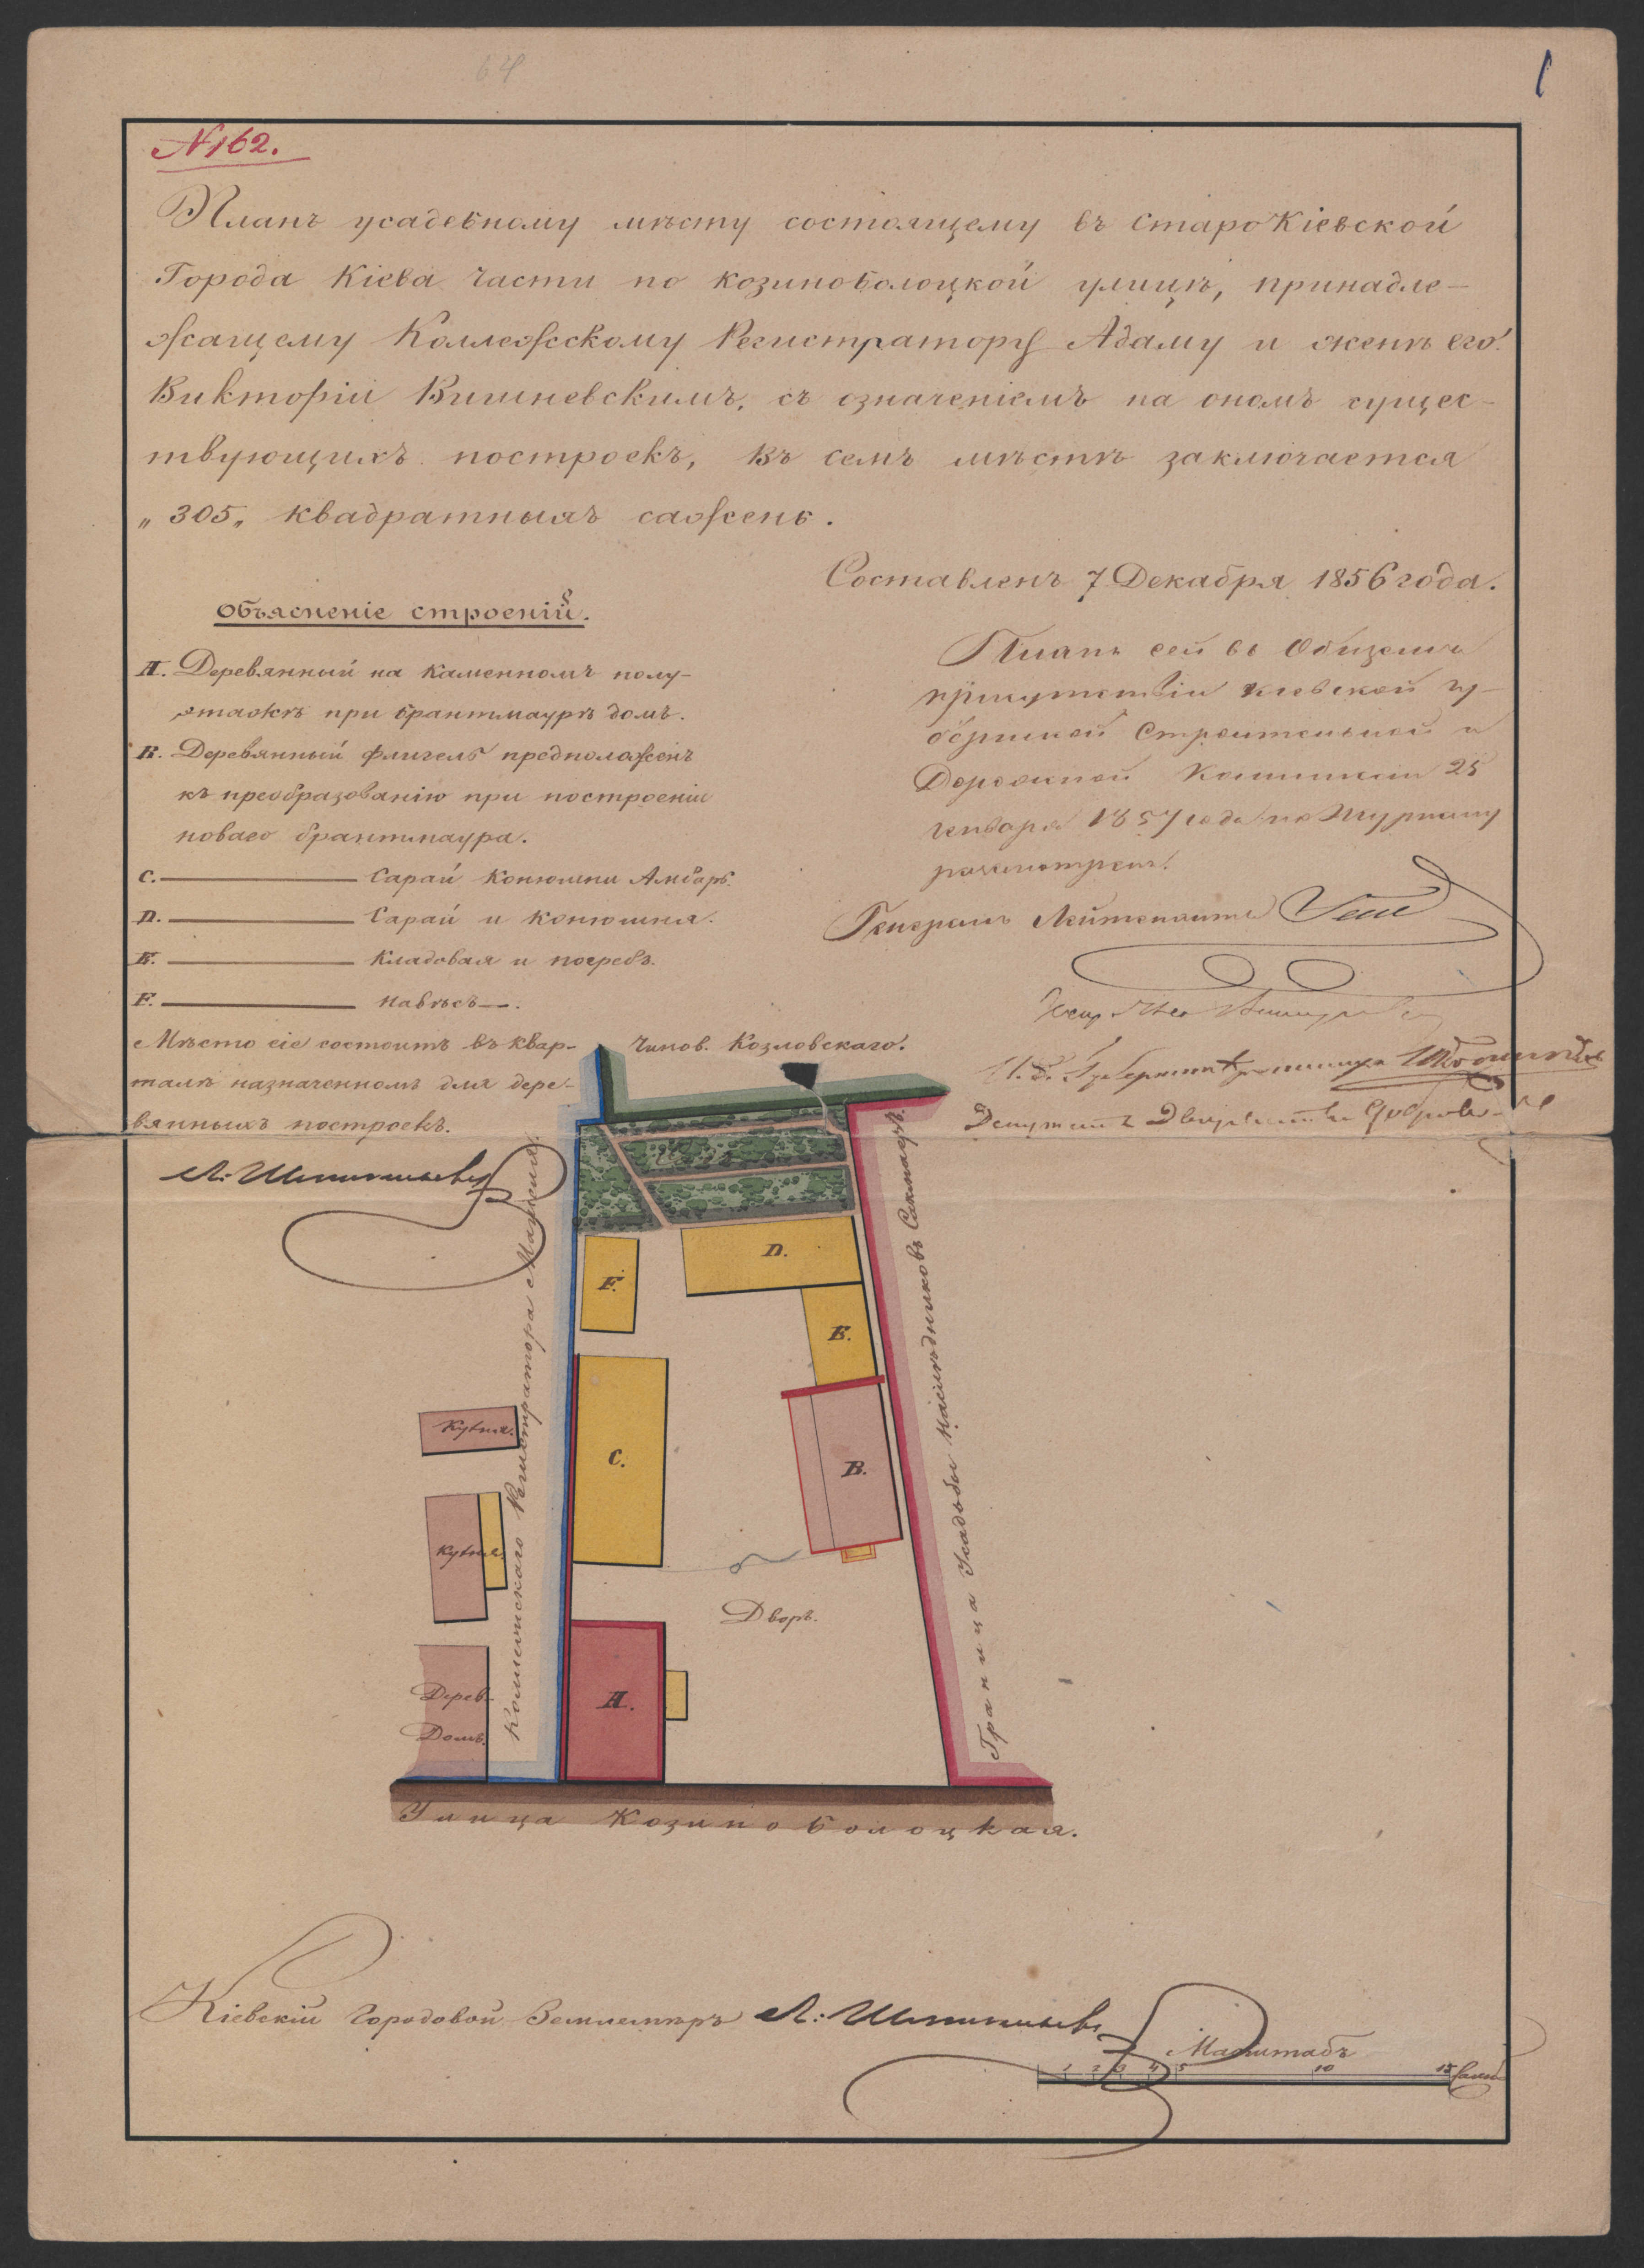 64
1
№162.
Планъ усадебному мѣсту состоящему въ Старокіевской
Города Кіева части по козиноболоцкой улицѣ, принадле-
жащему Коллежскому Регистратору Адаму и женѣ его
Викторіи Вишневскимъ, съ означеніемъ на ономъ сущес-
твующихъ построекъ, Въ семъ мѣстѣ заключается
„305„ квадратныхъ сажень.
Составленъ 7 Декабря 1856 года.
Объясненіе строеній.
A. Деревянный на каменномъ полу-
этажѣ при брантмаурѣ домъ.
B. Деревянный флигель предположенъ
къ преобразованію при построеніи
новаго брантмаура.
C. Сарай Конюшни Амбаръ.
D. Сарай и конюшня.
E. Кладовая и погребъ.
F. Навѣсъ.
Мѣсто сіе состоитъ въ квар-
талѣ назначенномъ для дере-
вянныхъ построекъ.
Планъ сей въ Общемъ
присутствіи Кіевской гу-
бернской Строительной и
Дорожной Коммисіи 25
генваря 1857 года по Журналу
разсмотренъ.
Генералъ Лейтенантъ
Депутатъ Дворянства
Чинов. Козловскаго.
Коллежскаго Регистратора
Граница Усадьбы Наслѣдниковъ
D.
F.
E.
C.
B.
A.
Кухня.
Кухня.
Дерев.
Домъ.
Дворъ.
Улица Козиноболоцкая.
Кіевскій Городовой Землемѣръ
Масштабъ
1 2 3 4 5 10 15 Саж.